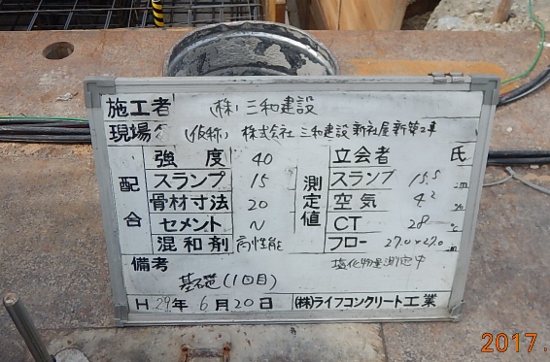 施工者 (株)三和建設
現場名 (仮称) 株式会社 三和建設 新社屋新築工事
配合 測定値
強度 40 立会者 氏
スランプ 15 スランプ 15.5 cm
骨材寸法 20 空気 4.2 %
セメント N CT 28 ℃
混和剤 高性能 フロー 27.0×27.0 cm
備考 塩化物量測定中
基礎(1回目)
H 29年 6月 20日 (株)ライフコンクリート工業
2017.